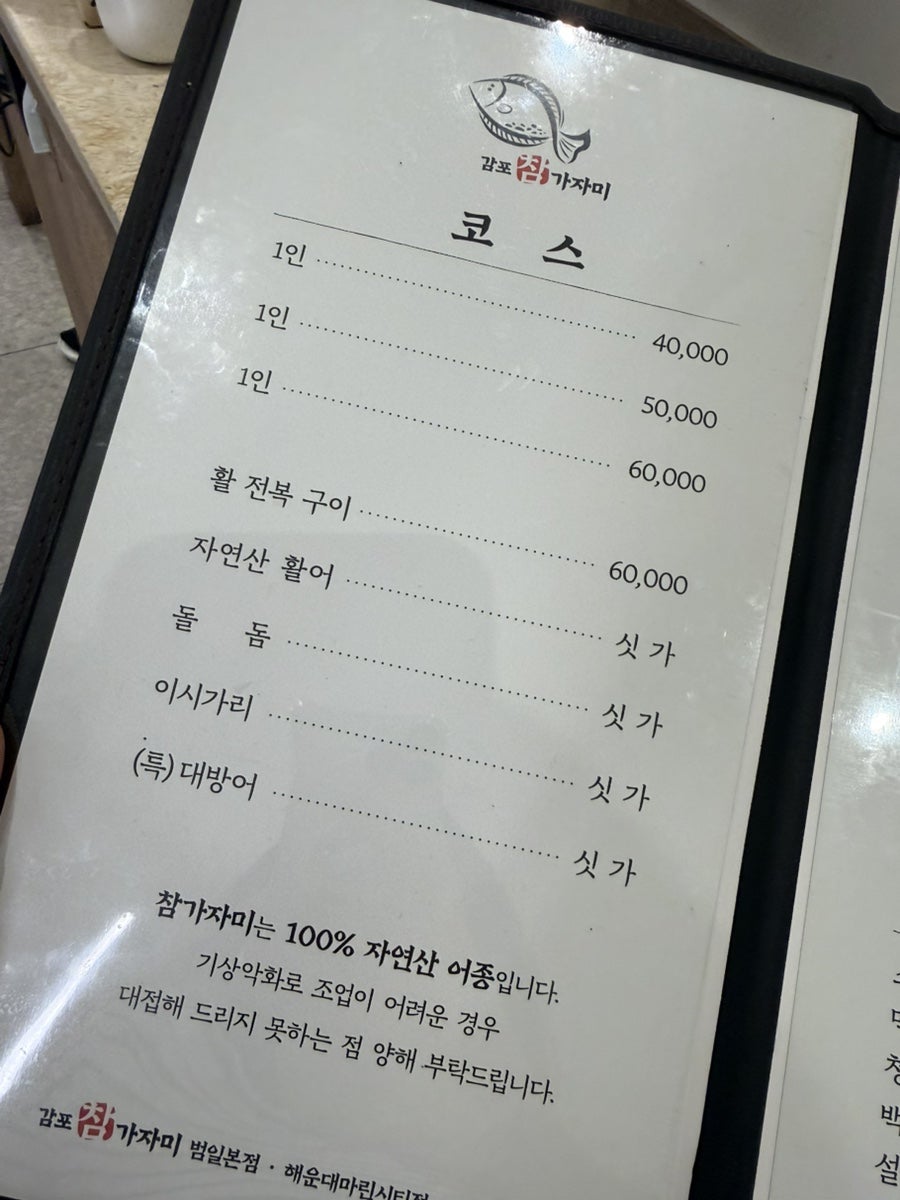 감포 참 가자미
코 스
1인 40,000
1인 50,000
1인 60,000
활 전복 구이 60,000
자연산 활어 싯 가
돌 돔 싯 가
이시가리 싯 가
(특) 대방어 싯 가
참가자미는 100% 자연산 어종입니다.
기상악화로 조업이 어려운 경우
대접해 드리지 못하는 점 양해 부탁드립니다.
감포 참 가자미 범일본점 · 해운대마린시티점